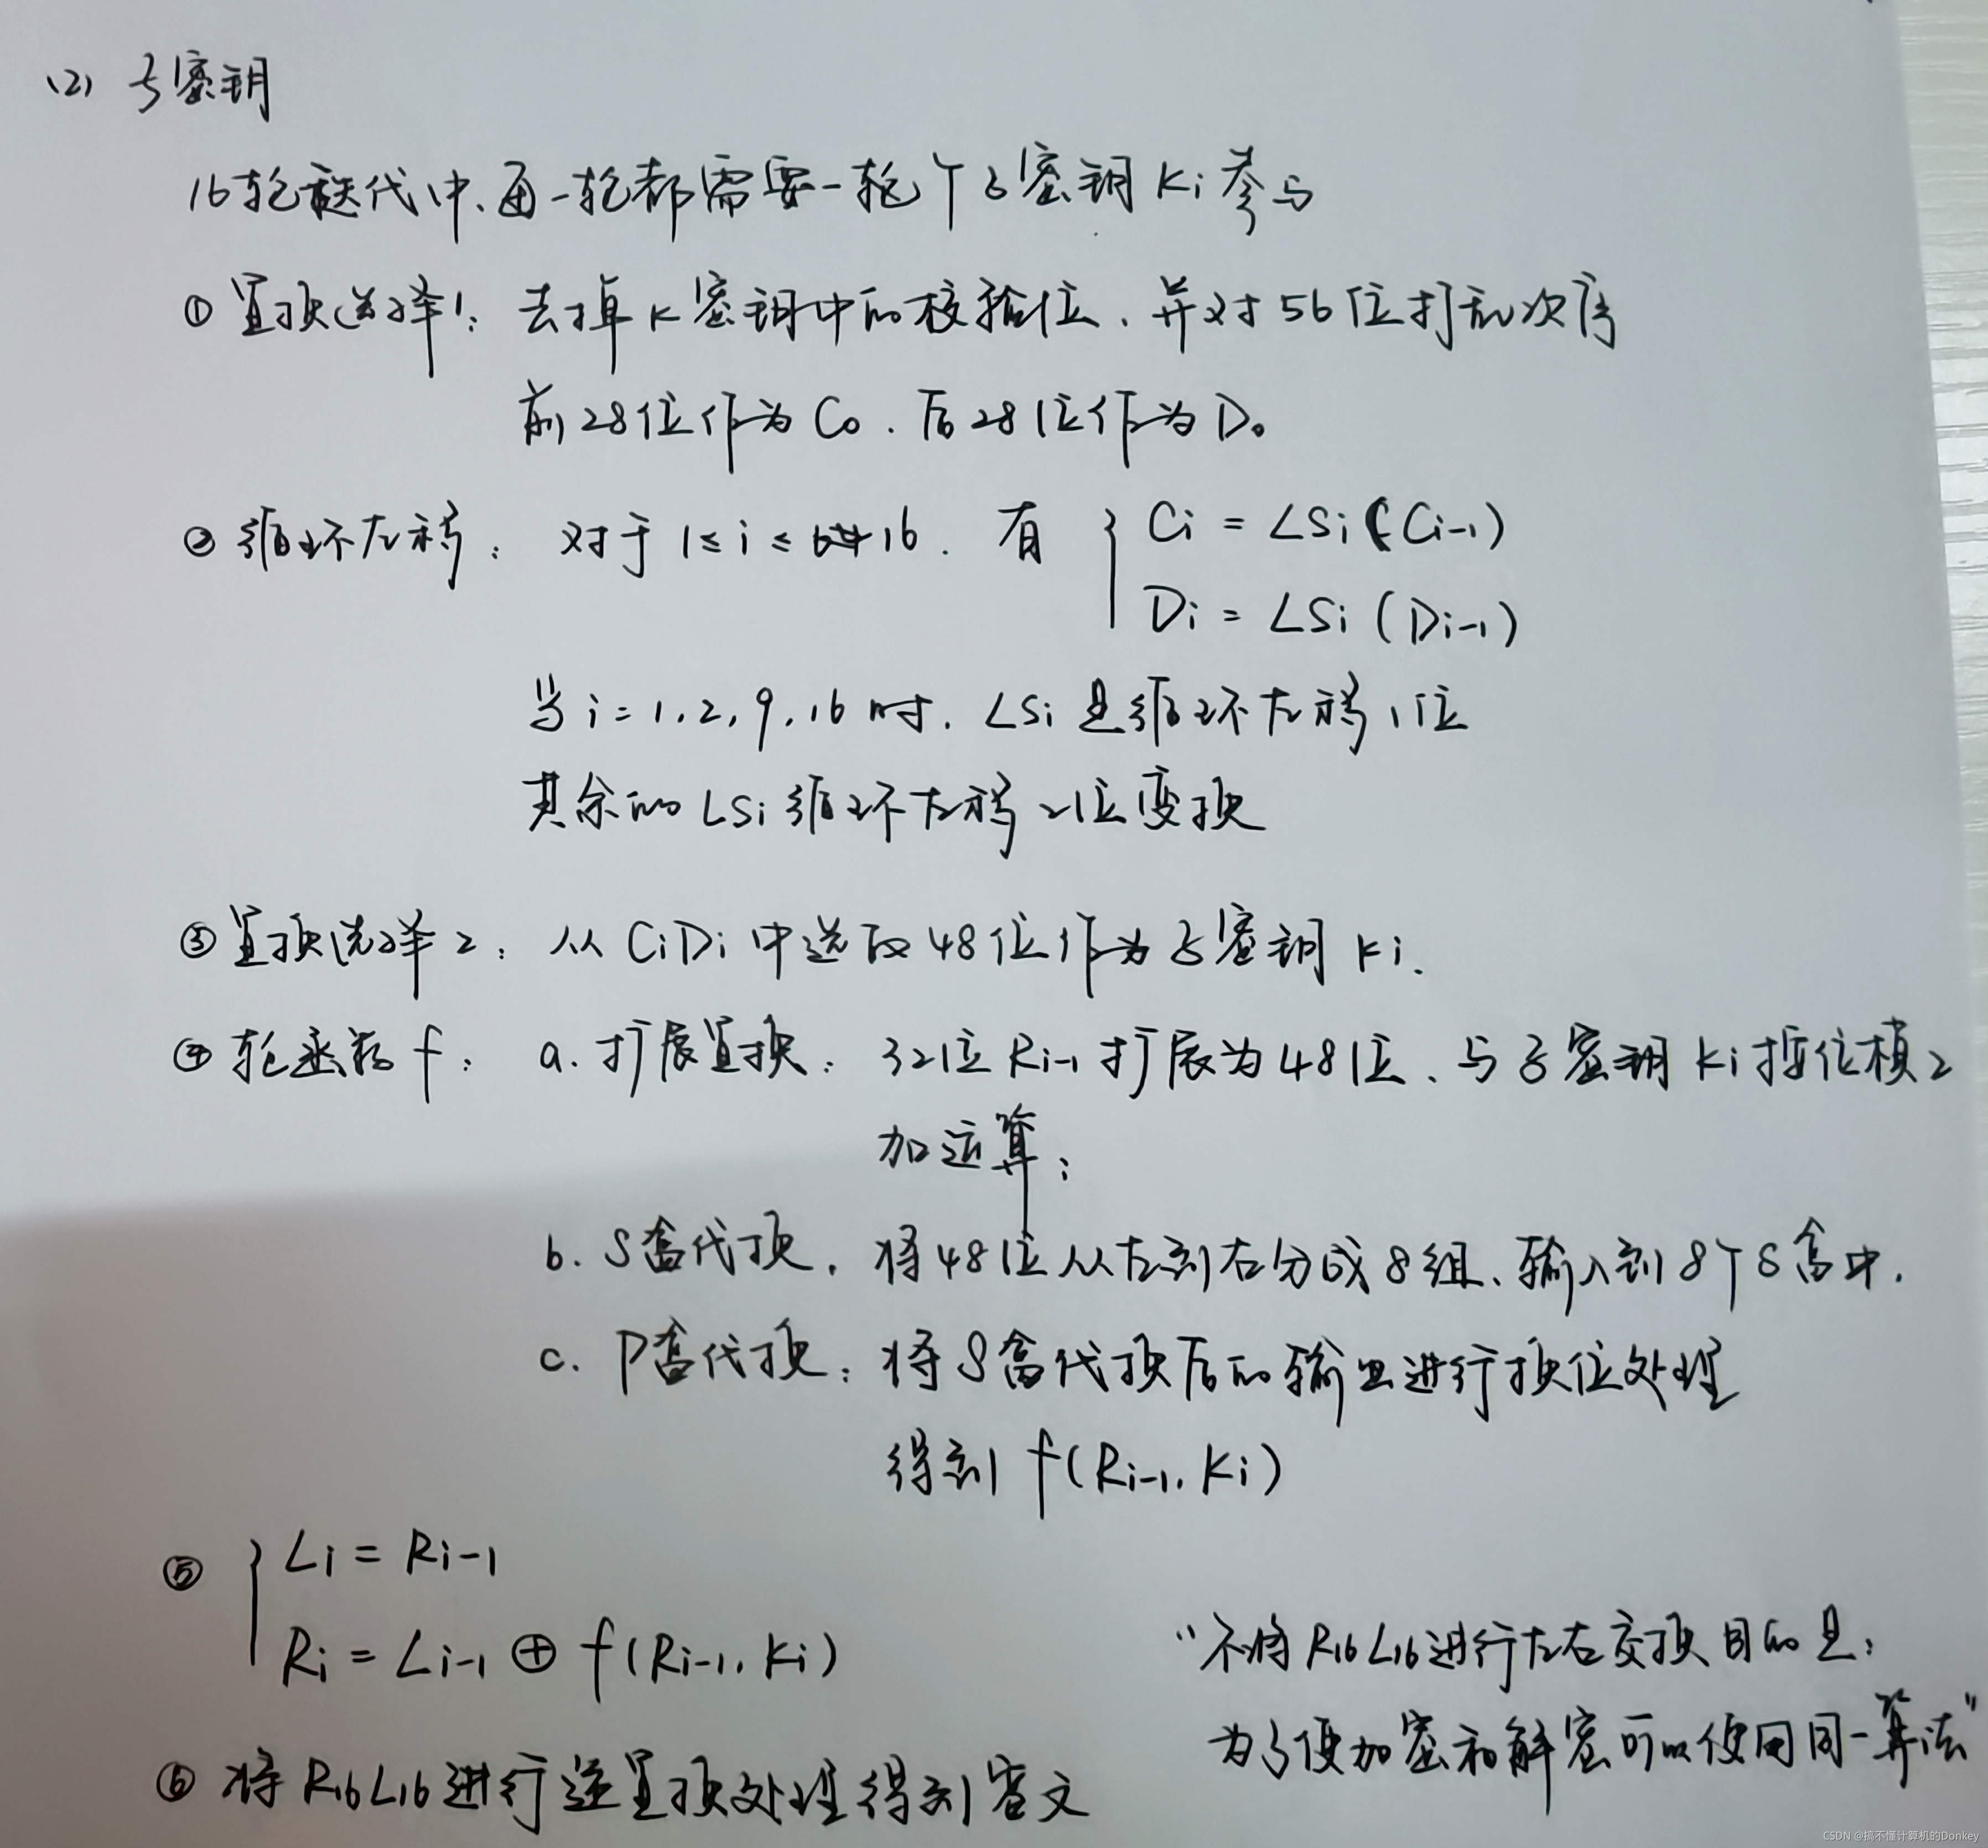 (2) 子密钥
16轮迭代中、每一轮都需要一轮个子密钥 Ki 参与
① 置换选择1: 去掉K密钥中的校验位、并对56位打乱次序
前28位作为C0、后28位作为D0
② 循环左移: 对于 1≤i≤16. 有 { Ci = LSi(Ci-1)
Di = LSi(Di-1)
当 i=1,2,9,16时, LSi是循环左移1位
其余的LSi循环左移2位变换
③ 置换选择2: 从CiDi中选取48位作为子密钥Ki.
④ 轮函数f: a. 扩展置换: 32位Ri-1扩展为48位、与子密钥Ki按位模2
加运算;
b. S盒代换. 将48位从左到右分成8组、输入到8个S盒中.
c. P盒代换: 将S盒代换后的输出进行换位处理
得到 f(Ri-1, Ki)
⑤ { Li = Ri-1
Ri = Li-1 ⊕ f(Ri-1, Ki)
"不将R16L16进行左右交换目的是:
为了使加密和解密可以使用同一算法"
⑥ 将R16L16进行逆置换处理得到密文
CSDN @搞不懂计算机的Donkey